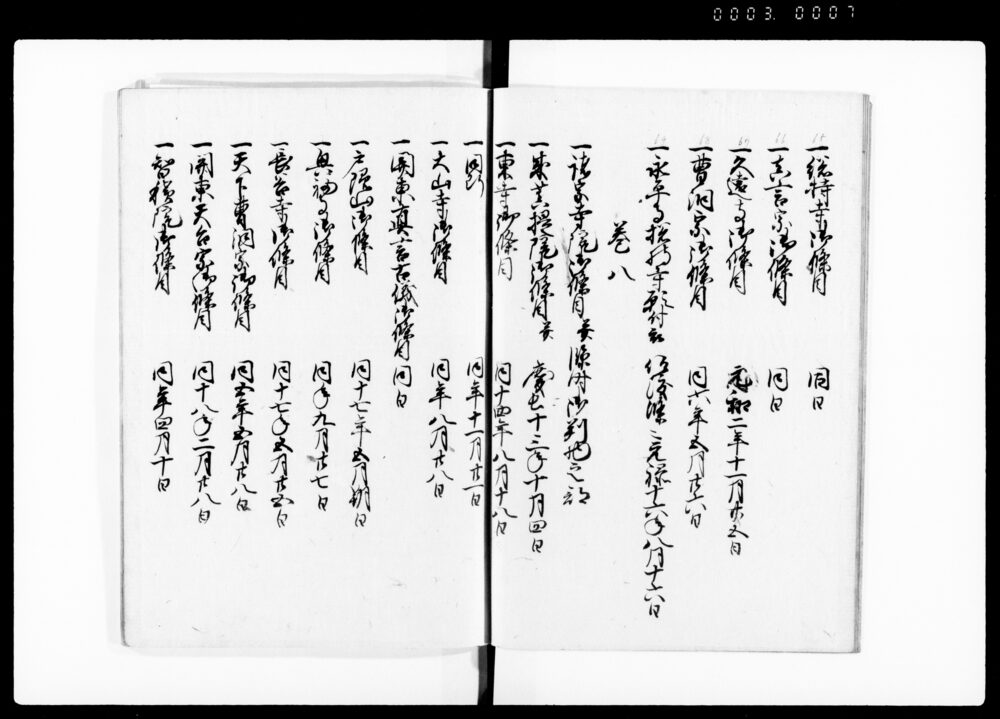 0003. 0007
一総持寺御條目 同日
一真言宗御條目 同日
一久遠寺御條目 元和二年十一月廿五日
一曹洞宗御條目 同六年五月廿六日
一永平寺総持寺 元禄十六年八月十六日
巻八
一諸宗寺院御條目
一来芸提院御條目 慶長十三年十月四日
一東寺御條目 同十四年八月十八日
一同断 同年十一月廿一日
一大山寺御條目 同年八月廿八日
一関東真言古儀御條目 同日
一戸隠山御條目 同十七年五月朔日
一興福寺御條目 同年九月廿七日
一長谷寺御條目 同十七年五月廿五日
一天下曹洞宗御條目 同五年五月廿八日
一関東天台宗御條目 同十八年二月廿八日
一智積院御條目 同年四月十日